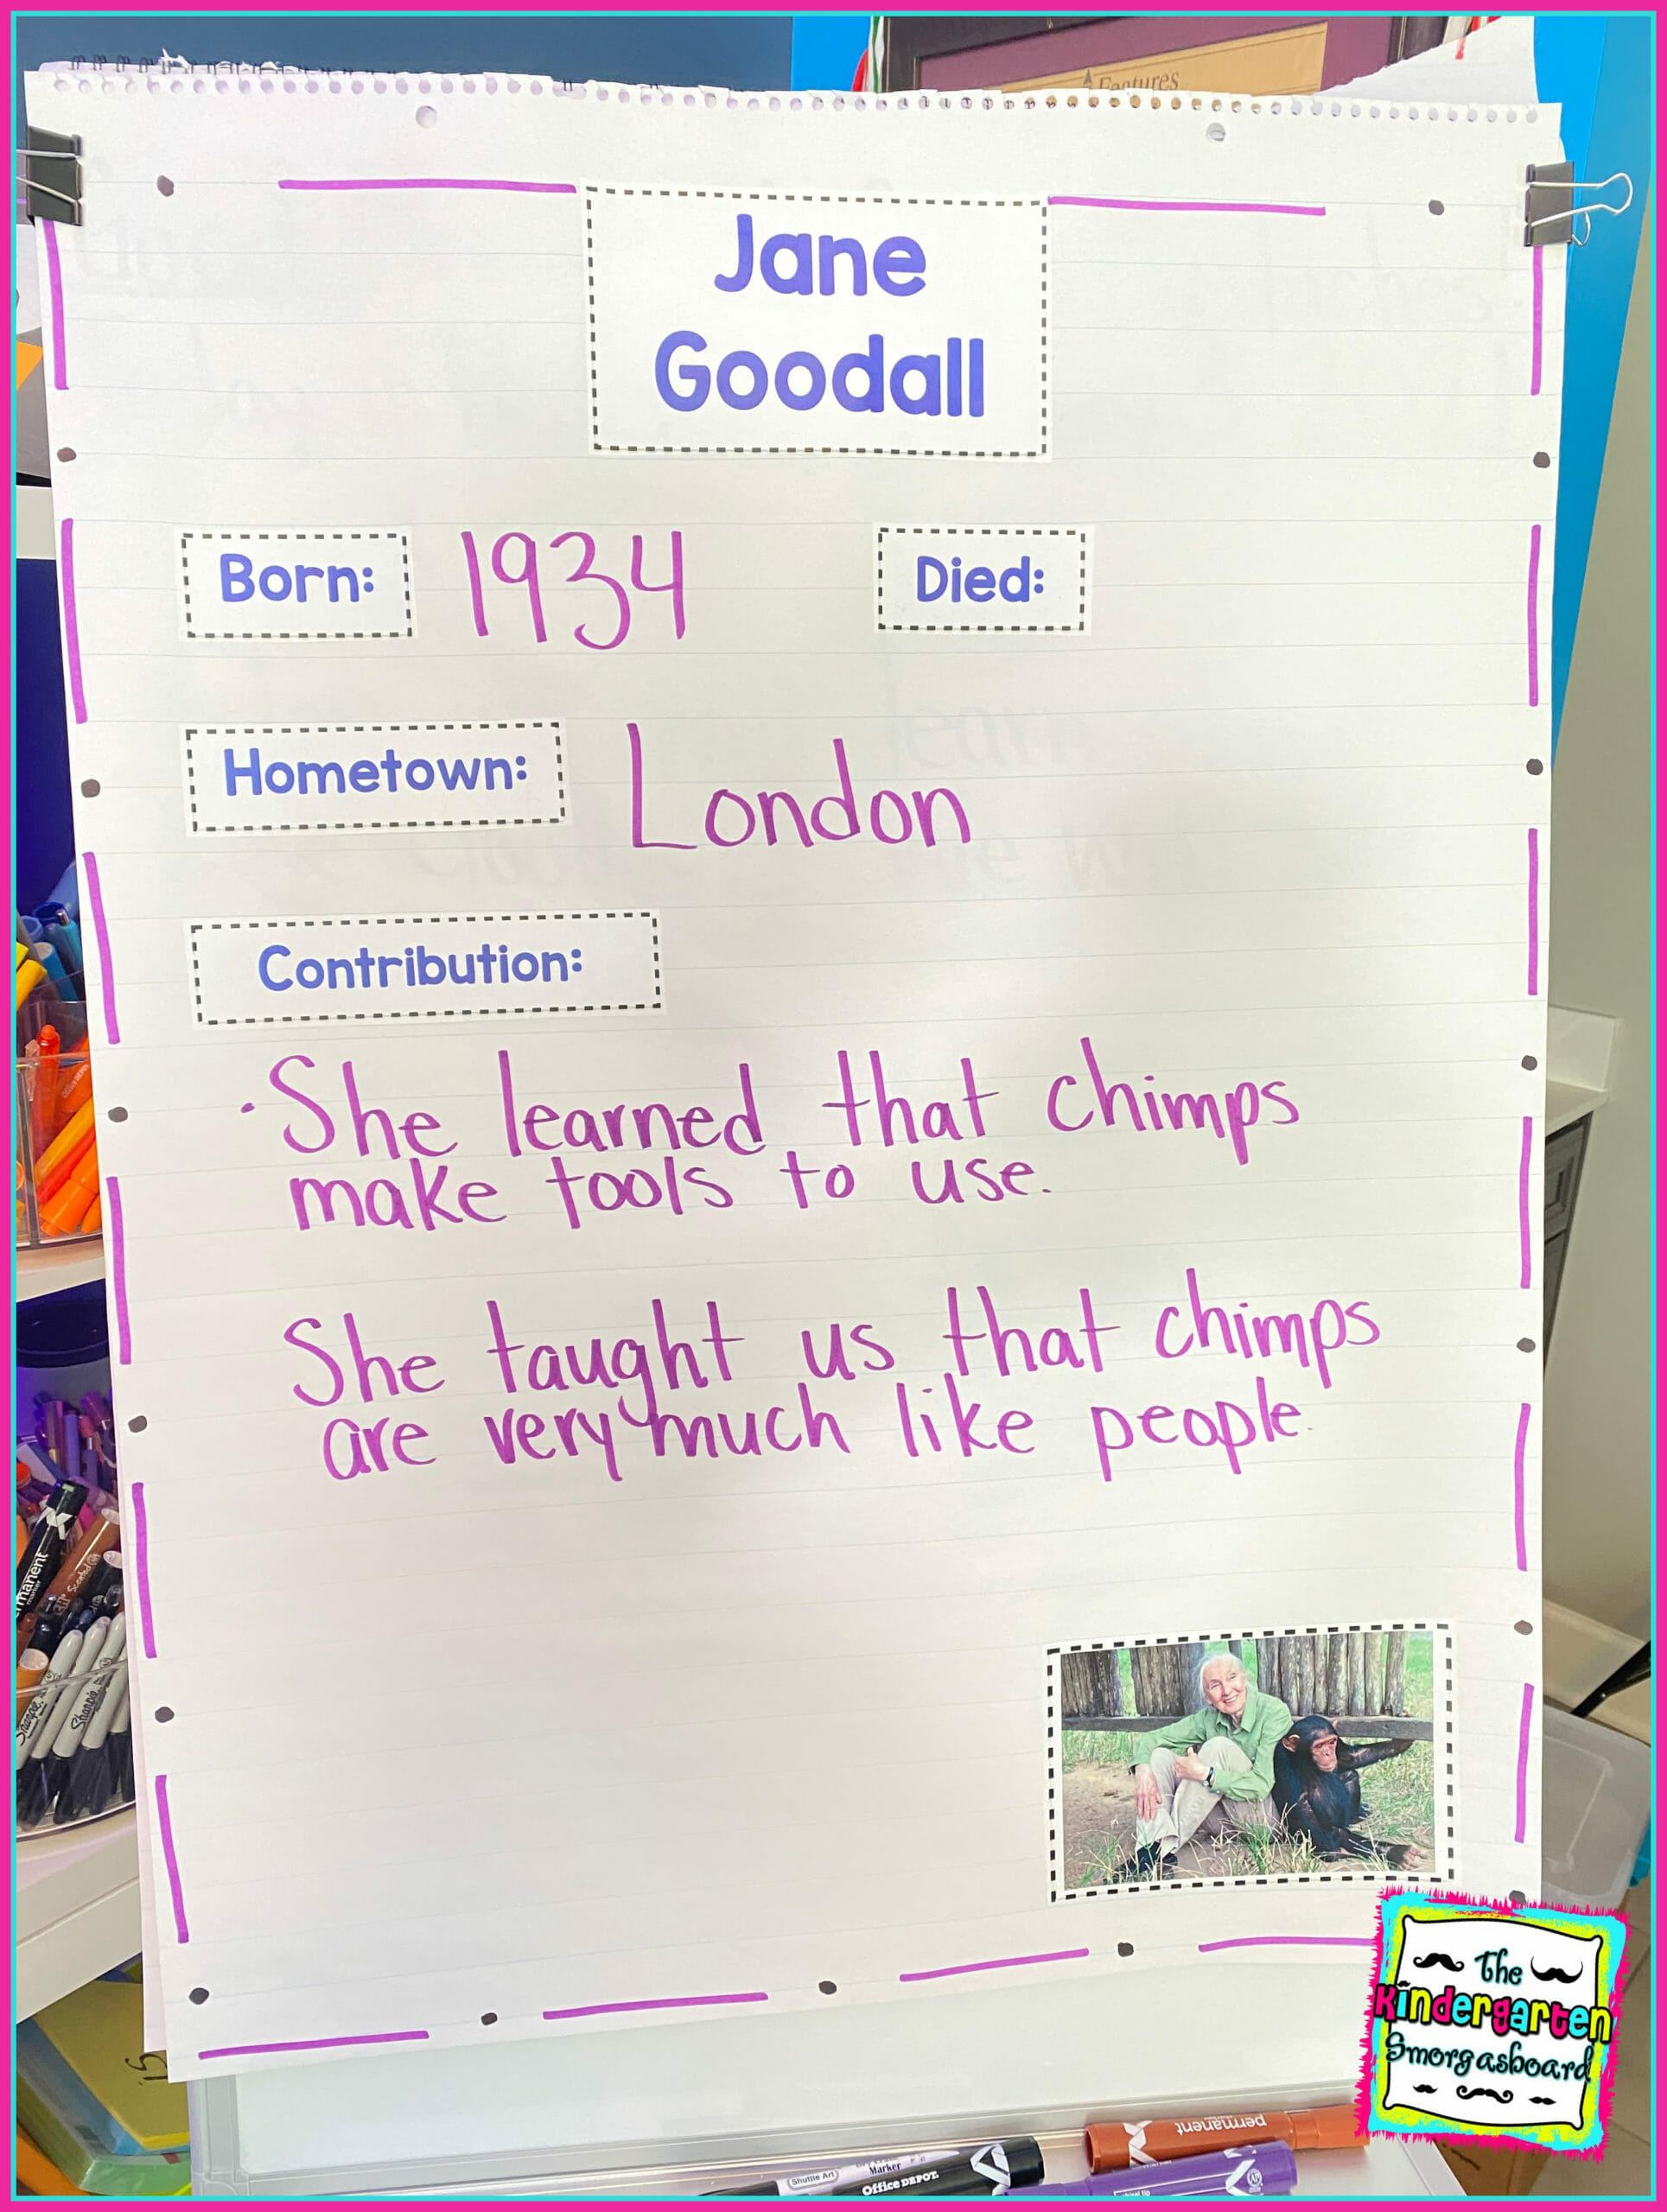 Features
Jane
Goodall
Born: 1934 Died:
Hometown: London
Contribution:
·She learned that chimps
make tools to use.
She taught us that chimps
are very much like people.
manent
marker
Scented
Sharpie
Sharpie
The
Kindergarten
Smorgasboard
permanent
Shuttle Art
Marker
Office DEPOT